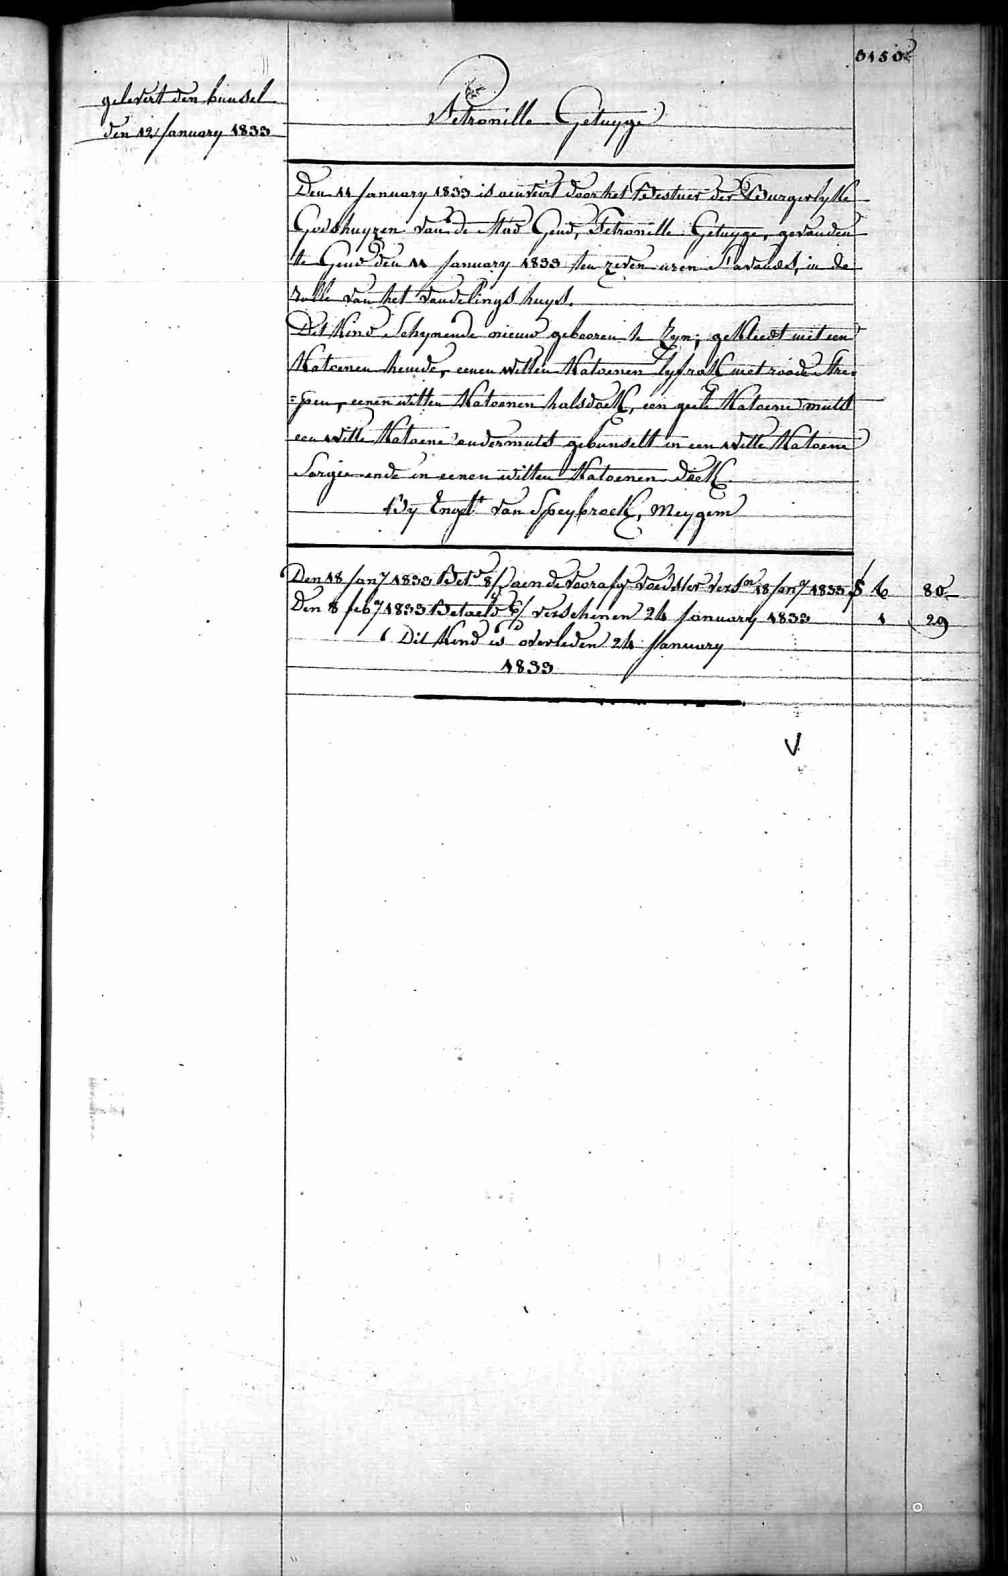 3150
gelevert den bunsel
den 12 January 1833
Petronille Getuyge
Den 11 January 1833 is aenveirt door het Bestuer der Burgerlyke
Godshuyzen van de Stad Gend, Petronille Getuyge, gevonden
te Gend den 11 January 1833 ten zeven uren s'avonds, in de
rolle van het vondelings huys.
Dit kind schynende nieuw gebooren te zyn; gekleedt met een
Katoenen hemde, eenen witten Katoenen lyfrok met roode stre=
=pen, eenen witten Katoenen halsdoek, een geele Katoene muts
een witte Katoene ondermuts gebunselt in een witte Katoene
Sargie ende in eenen witten Katoenen doek
by Engt van Speybroeck, Meygem
Den 18 Jany 1833 Bete 8/ aen de voorafge voedster versn 18 Jany 1833 6 80
Den 8 feby 1833 Betaeld 6/ verschenen 24 January 1833 1 29
Dit Kind is overleden 24 January
1833
V